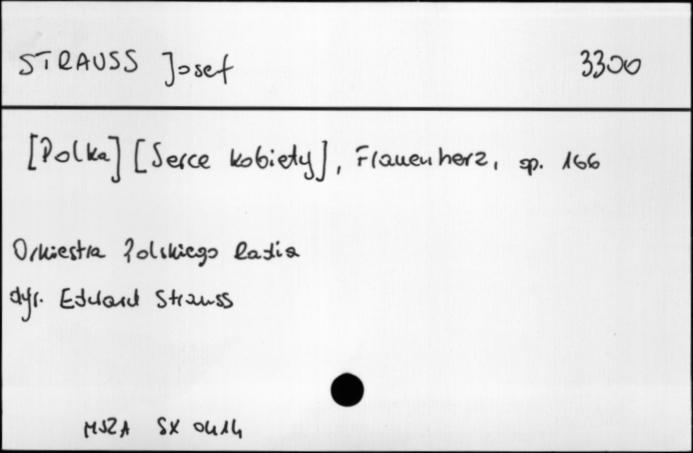 STRAUSS Josef 3300
[Polka] [Serce kobiety], Frauenherz, op. 166
Orkiestra Polskiego Radia
dyr. Eduard Strauss
MUZA SX 0414